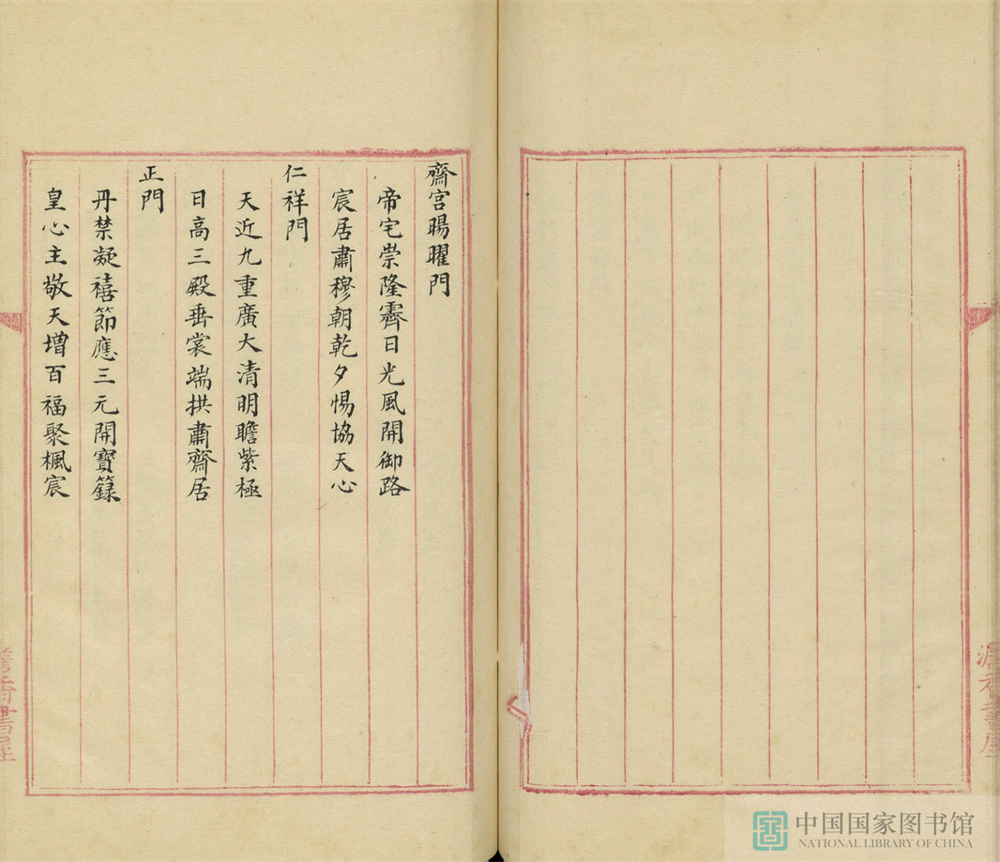 齋宮暘曜門
帝宅崇隆霽日光風開御路
宸居肅穆朝乾夕惕協天心
仁祥門
天近九重廣大清明瞻紫極
日高三殿垂裳端拱肅齋居
正門
丹禁凝禧節應三元開寶籙
皇心主敬天增百福聚楓宸
中国国家图书馆
NATIONAL LIBRARY OF CHINA